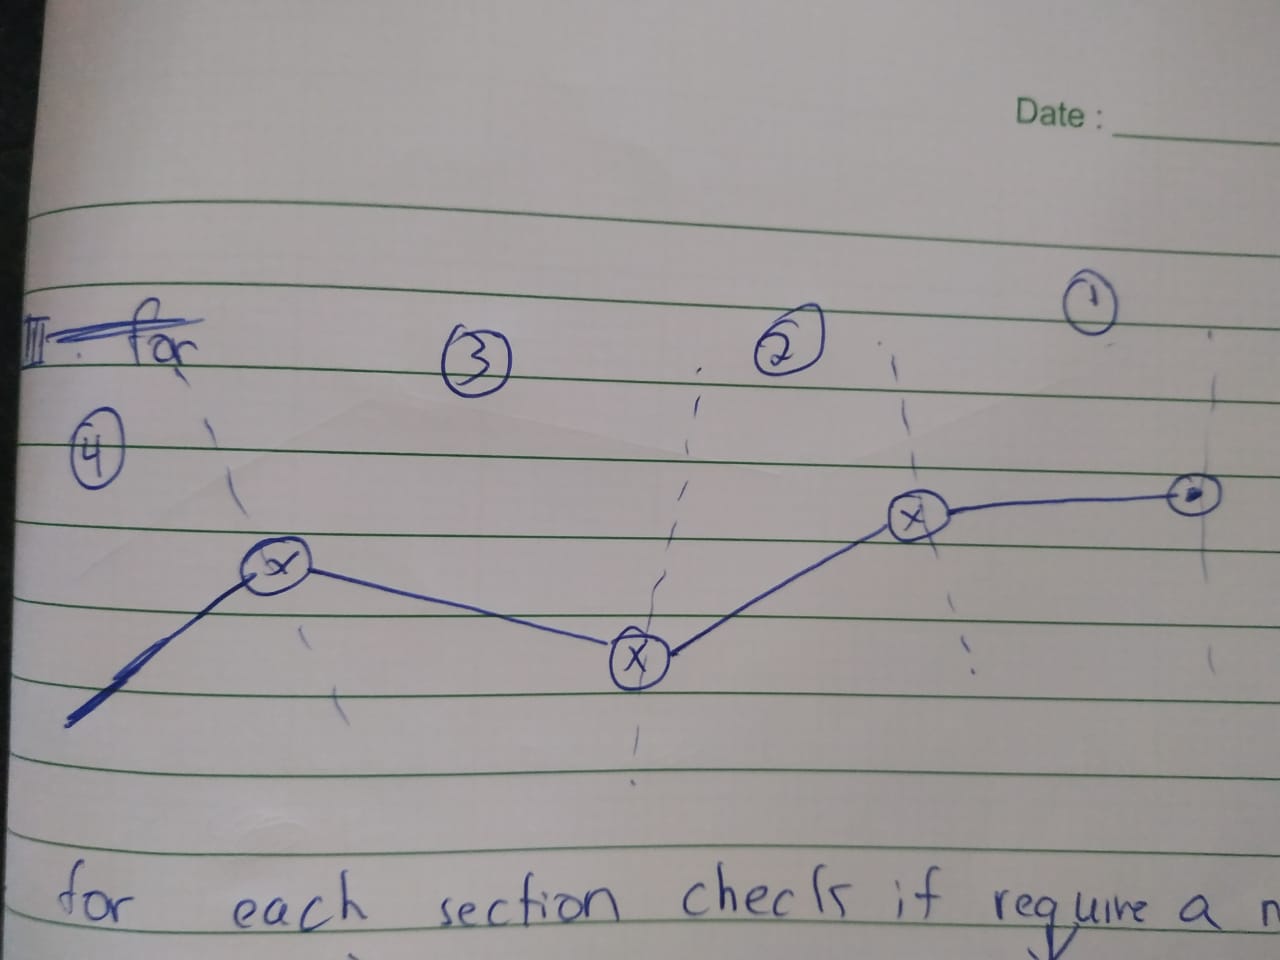 Date :
1
2
3
III. for
4
x
x
x
for each section check if require a